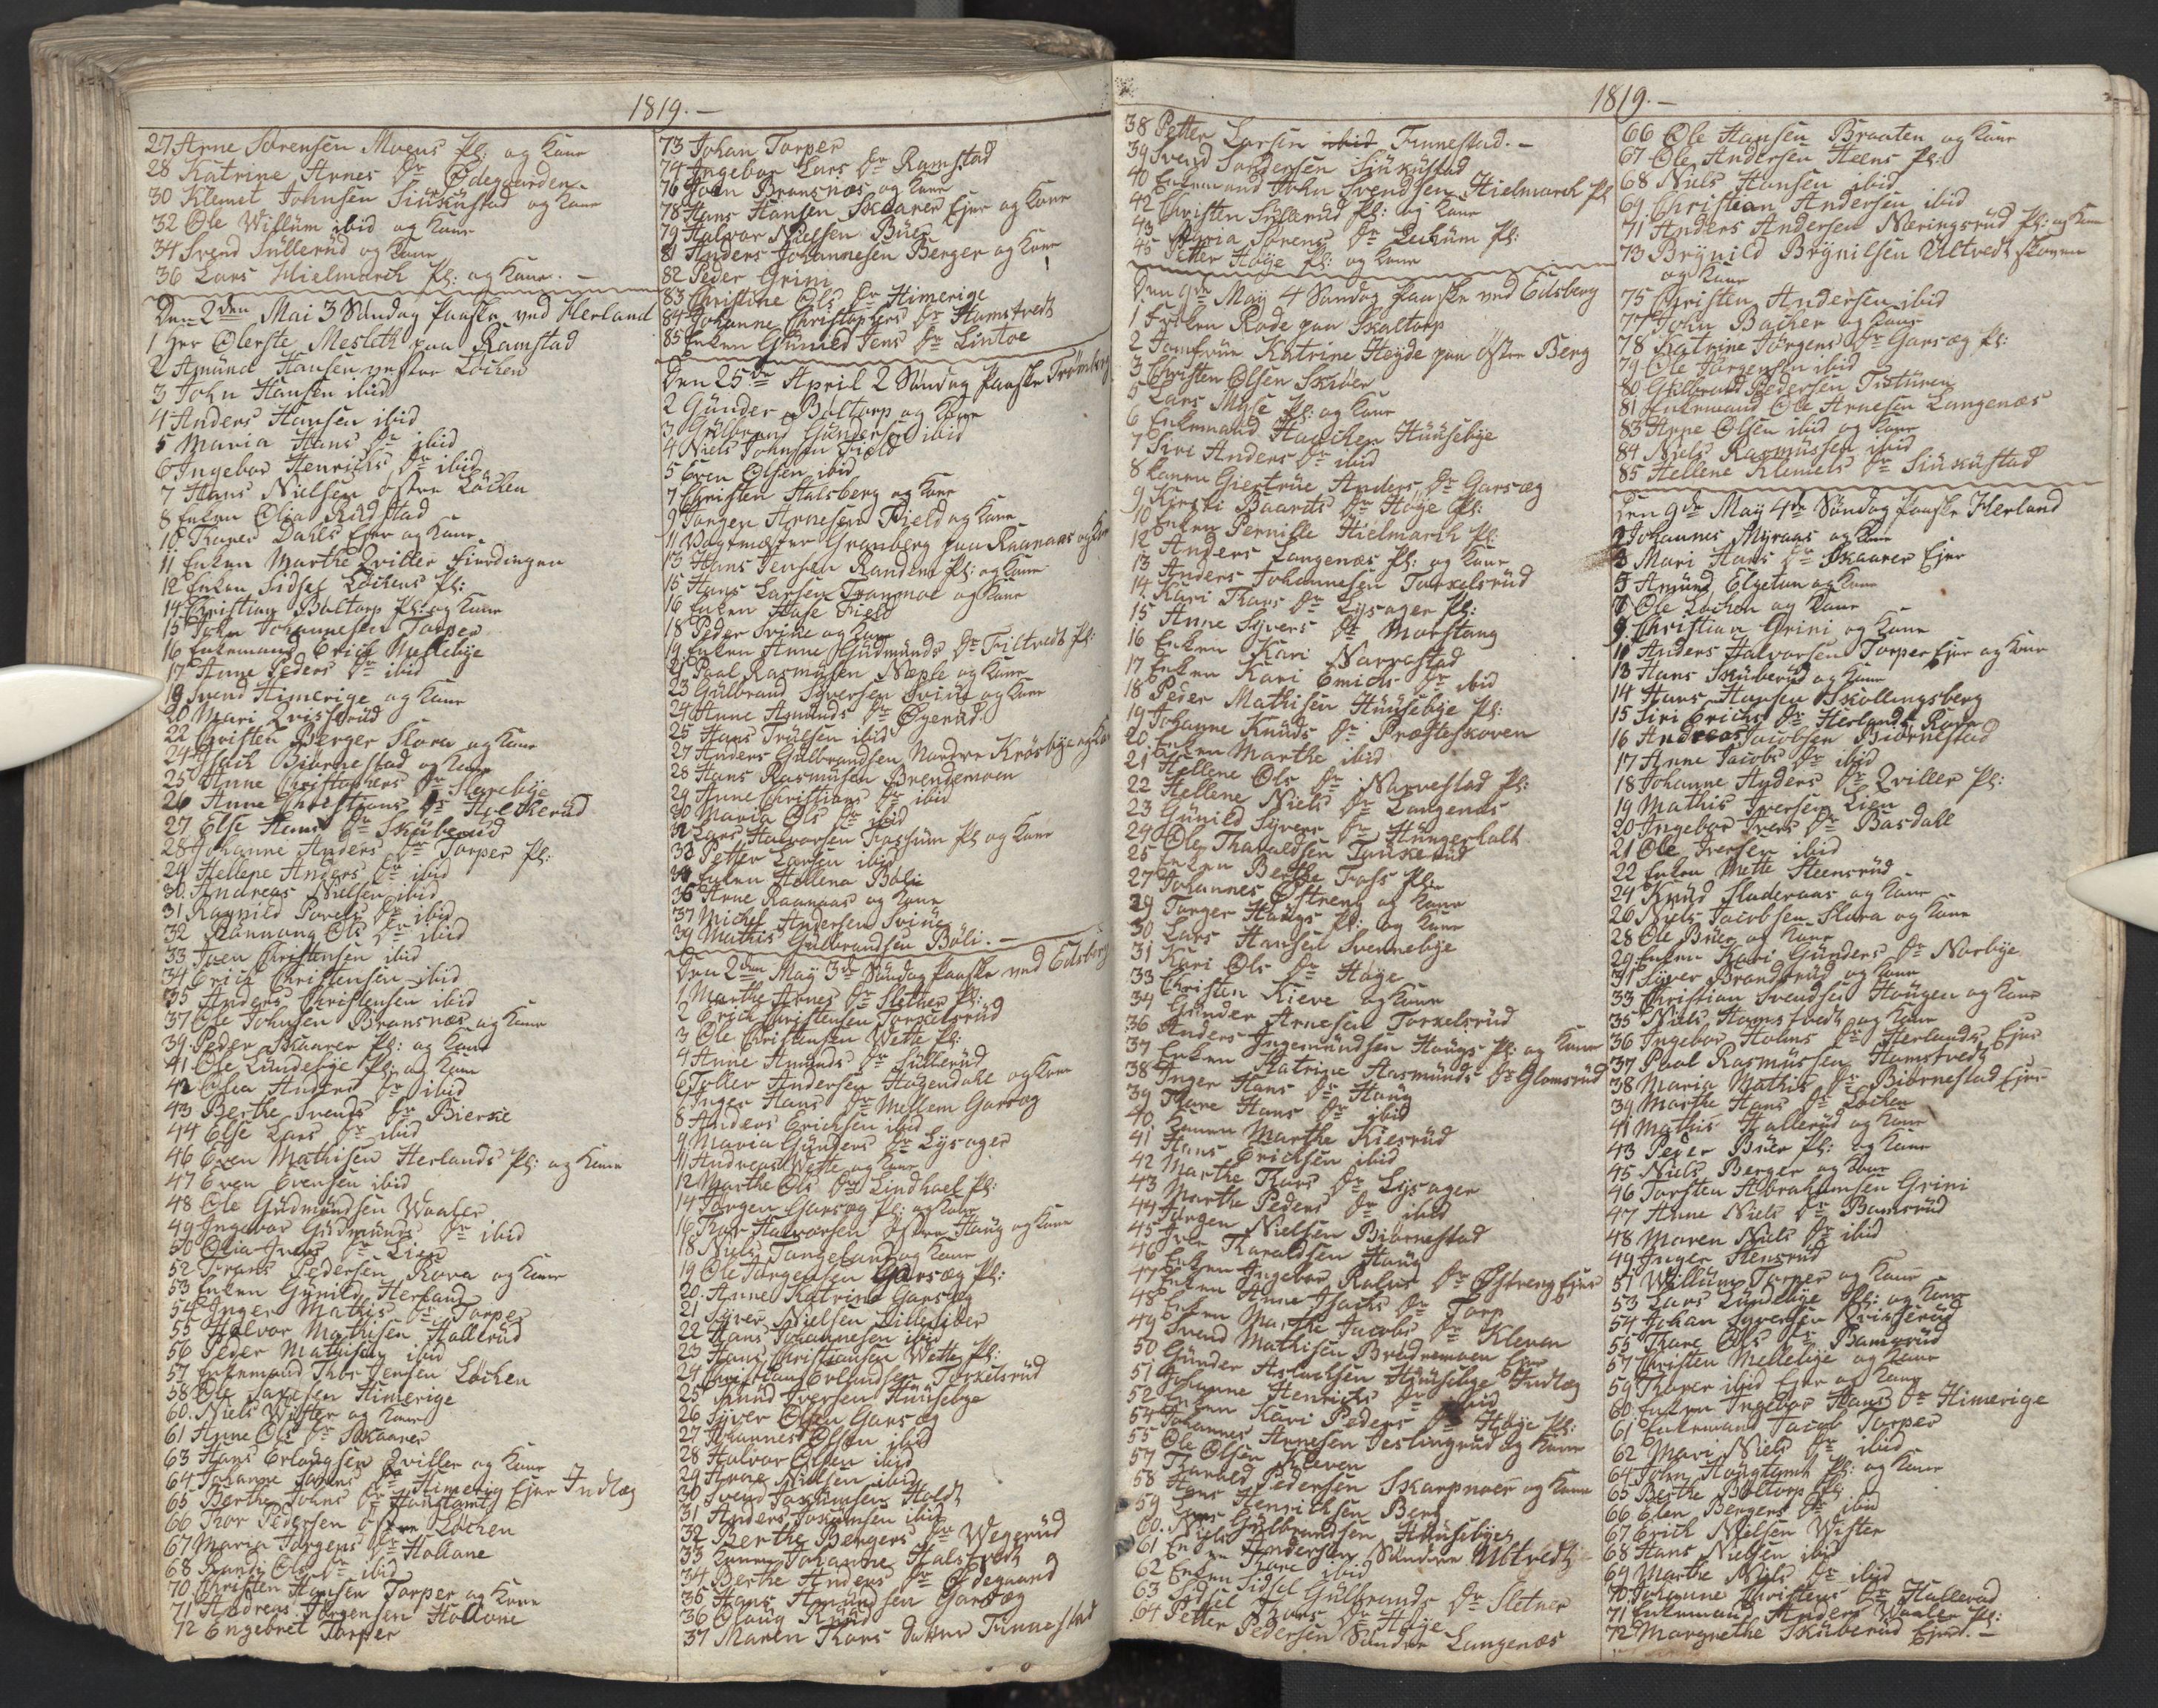 1819.-
27 Arne Sörensen Moens Pl: og Kone
28 Katrine Arnes Dr Ödegaarden
30 Klemet Johnsen Siükustad og Kone
32 Ole Willüm ibid og Kone
34 Svend Süllerüd og Kone
36 Lars Hielmarck Pl: og Kone.-
Den 2den Mai 3 Sündag Paaske ved Herland
1 Hr Oberste Mesleth paa Ramstad
2 Amünd Hansen vestre Löchen
3 John Hansen ibid
4 Anders Hansen ibid
5 Maria Hans Dr ibid
6 Ingebor Henrichs Dr ibid
7 Hans Nielsen östre Löchen
8 Enken Olia Rudstad
10 Dahls Ejer og Kone
11 Enken Marthe Qviller Fierdingen
12 Enken Sidsel Löchens Pl:
14 Christian Boltorp Pl: og Kone
15 John Johannesen Torper
16 Enkemand Erich Mellebye
17 Anne Peders Dr ibid
19 Svend Himerige og Kone
20 Mari Qvisserüd
22 Christen Berger Slora og Kone
24 Isach Biörnestad og Kone
25 Anne Christophers Dr Harebye
26 Anne Christians Dr Holtkerüd
27 Else Hans Dr Sküberüd
28 Johanne Anders Dr Torper Pl:
29 Hellene Anders Dr ibid
30 Andreas Nielsen ibid
31 Ragnild Povels Dr ibid
32 Rannaug Ols Dr ibid
33 Iven Christensen ibid
34 Erich Christensen ibid
35 Anders Christensen ibid
37 Ole Johnsen Bransnæs og Kone
39 Peder Skaarer Pl: og Kone
41 Ole Lündebye Pl: og Kone
42 Olea Anders Dr ibid
43 Berthe Svends Dr Bierke
44 Else Lars Dr ibid
46 Even Mathisen Herlands Pl: og Kone
47 Even Evensen ibid
48 Ole Güdmündsen Waaler
49 Ingebor Güdmünds Dr ibid
50 Olia Ivers Dr Lien
52 Frans Pedersen Rova og Kone
53 Enken Günild Herland
54 Inger Mathis Dr Torper
55 Halvor Mathisen Hallerüd
56 Peder Mathisen ibid
57 Enkemand Thor Jensen Löchen
58 Ole Himerige
60 Niels Wister og Kone
61 Anne Ols Dr Skaarer
63 Hans Erlaugsen Qviller og Kone
64 Johanne Dr Himerig Ejer Indlæg
65 Berthe Johns Dr
66 Thor Pedersen östre Löchen
67 Maria Jörgens Dr Hollane
68 Randi Ols Dr ibid
70 Christen Hansen Torper og Kone
71 Andreas Jörgensen Hollane
72 Engebret Torper
73 Johan Torper
74 Ingebor Lars Dr Ramstad
76 John Bransnæs og Kone
78 Hans Hansen Skaarer Ejer og Kone
79 Halvor Nielsen Büer
81 Anders Johannesen Berger og Kone
82 Peder Grini
83 Christine Ols Dr Himerige
84 Johanne Christophers Dr Hamstvedt
85 Enken Günild Jens Dr Lintoe
Den 25de April 2 Sündag Paaske Trömborg
2 Günder Boltorp og Kone
3 Gülbrand Gündersen ibid
4 Niels Johnsen Field
5 Even Olsen ibid
7 Christen Halsberg og Kone
9 Jörgen Arnesen Field og Kone
11 Vagtmæster Granberg paa Raanaas og Kone
13 Hans Jensen Randem Pl: og Kone
15 Hans Larsen og Kone
16 Enken Field
18 Peder Sviüe og Kone
19 Enken Anne Güdmünds Dr Filtvedt Pl:
21 Paal Rasmüsen Næple og Kone
23 Gülbrand Syversen Sviüe og Kone
24 Anne Amünds Dr Öyerüd
25 Hans Trülsen ibid
27 Anders Gülbrandsen Nordre Krösbye og Kone
28 Hans Rasmüsen Brendemoen
29 Anne Christians Dr ibid
30 Maria Ols Dr ibid
32 Lars Halvorsen Fossum Pl: og Kone
33 Petter Larsen ibid
34 Enken Hellena Böli
36 Arne Raanaas og Kone
37 Michel Andersen Sviüe
39 Mathis Gülbrandsen Böli.-
Den 2den May 3de Sündag Paaske ved Eidsberg
1 Marthe Arnes Dr Sletner Pl:
2 Erich Christensen Torkelsrüd
3 Ole Christensen Wette Pl:
4 Anne Amünds Dr Süllerüd
6 Toller Andersen Haugendahl og Kone
7 Inger Hans Dr Mellem Garsæg
8 Anders Erichsen ibid
9 Maria Günders Dr Lysager
11 Andreas Wette og Kone
12 Marthe Ols Dr Lindhoel Pl:
14 Jörgen Garsæg Pl: og Kone
16 Thor Halvorsen Östre Haug og Kone
18 Niels Tangeland og Kone
19 Ole Jörgensen Garsæg Pl:
20 Anne Katrine Garsæg
21 Syver Nielsen Lilleküer
22 Hans Johannesen ibid
23 Hans Christiansen Wette Pl:
24 Christian Erlandsen Torkelsrüd
25 Knüd Iversen Hüüsebye
26 Syver Olsen Garsæg
27 Johannes Olsen ibid
28 Halvor Olsen ibid
29 Arne Nielsen ibid
30 Svend Joakimsen Holdt
31 Anders Joakimsen ibid
32 Berthe Bergers Dr Wegerüd
33 Konen Johanne Halstvedt
34 Berthe Anders Dr Ödegaard
35 Hans Amündsen Garsæg
36 Olaug
37 Maren Thors Datter Tinnestad
1819.-
38 Petter Larsen ibid Tinnestad.-
39 Svend Siükustad
40 Enkemand John Svendsen Hielmarck Pl
42 Christen Süllerüd Pl: og Kone
43 Maria Sörens Dr Lechüm Pl:
45 Petter Höye Pl: og Kone
Den 9de May 4 Sündag Paaske ved Eidsberg
1 Fröken Rode paa Skaltorp
2 Jomfrüe Katrine Heyde paa Östre Berg
3 Christen Olsen Skröer
5 Lars Myse Pl: og Kone
6 Enkemand Haachen Hüüsebye
7 Siri Anders Dr ibid
8 Konen Giertrüe Anders Dr Garsæg
9 Kirsti Baards Dr Höye Pl:
10 Enken Pernille Hielmarck Pl:
12 Anders Langenæs Pl: og Kone
13 Anders Johannesen Torkelsrüd
14 Kari Thors Dr Lysager Pl:
15 Anne Syvers Dr Morstang
16 Enken Kari Narvestad
17 Enken Kari Emichs Dr ibid
18 Peder Mathisen Hüüsebye Pl:
19 Johanne Knüds Dr Præsteskoven
20 Enken Marthe ibid
21 Hellene Ols Dr Narvestad Pl:
22 Hellene Niels Dr Langenæs
23 Günild Syvers Dr Hüngerholt
24 Ole Tharaldsen Tünkerüd
25 Enken Berthe Foss Pl:
27 Johannes Östreng og Kone
29 Torger Haügs Pl: og Kone
30 Lars Hansen Svennebye
31 Kari Ols Dr Höye
33 Christen Kieve og Kone
34 Günder Arnesen Torkelsrüd
36 Anders Ingemündsen Haügs Pl: og Kone
37 Enken Katrine Aasmünds Dr Glomsrüd
38 Inger Hans Dr Haüg
39 Thore Hans Dr ibid
40 Konen Marthe Kiesrüd
41 Hans Erichsen ibid
42 Marthe Thors Dr Lysager
43 Marthe Peders Dr ibid
44 Jörgen Nielsen Biörnestad
45 Iver Tharaldsen Haüg
46 Enken Ingebor Dr Östreng Ejer
47 Enken Anne Isachs Dr Torp
48 Enken Marthe Jacobs Dr Kleven
49 Svend Mathisen Brendemoen Ejer
50 Günder Aslachsen Hüüsebye Indlæg
51 Johanne Henrichs Dr ibid
52 Enken Kari Peders Dr Höye Pl:
54 Johannes Arnesen Jeslingrüd og Kone
55 Ole Olsen Kleven
57 Tharald Pedersen Skarpnoer og Kone
58 Hans Henrichsen Berg
59 Lars Gülbrandsen Hüüsebye
60 Niels Andersen Söndere Ültvedt
61 Enken Thore ibid
62 Enken Sidsel Gülbrands Dr Sletner
63 Sidsel Thors Dr Höye
64 Petter Pedersen Söndre Langenæs
1819.-
66 Ole Hansen Braaten og Kone
67 Ole Andersen Heens Pl:
68 Niels Hansen ibid
69 Christian Andersen ibid
71 Anders Andersen Næringsrüd Pl: og Kone
73 Brynild Brynilsen Ültvedt skoven
og Kone
75 Christen Andersen ibid
77 John Bacher og Kone
78 Katrine Jörgens Dr Garsæg Pl:
79 Ole Jörgensen ibid
80 Gülbrand Pedersen Tistüren
81 Enkemand Ole Arnesen Langenæs
83 Arne Olsen ibid og Kone
84 Niels Rasmüssen ibid
85 Hellene Klemets Dr Siükustad
Den 9de May 4de Söndag Paaske Herland
2 Johannes Myraas og Kone
3 Mari Hans Dr Skaarer Ejer
5 Amünd Elgetun og Kone
7 Ole Löchen og Kone
9 Christian Grini og Kone
11 Anders Halvorsen Torper Ejer og Kone
13 Hans Sküberüd og Kone
14 Hans Hansen Skollingsberg
15 Siri Erichs Dr Herlands Rova
16 Andreas Jacobsen Biörnestad
17 Anne Jacobs Dr ibid
18 Johanne Anders Dr Qviller Pl:
19 Mathis Iversen Lien
20 Ingebor Ivers Dr Basdall
21 Ole Iversen ibid
22 Enken Mette Steensrüd
24 Knüd Sladeraas og Kone
26 Niels Jacobsen Slora og Kone
28 Ole Büer og Kone
29 Enken Kari Günders Dr Norbye
31 Syver Brandsrüd og Kone
33 Christian Svendsen Haügen og Kone
35 Niels Hamstvedt og Kone
36 Ingebor Holms Dr Herlands Ejer
37 Paal Rasmüssen Hamstvedt
38 Maria Mathis Dr Biörnestad Ejer
39 Marthe Hans Dr Löchen
41 Mathis Hallerüd og Kone
43 Peder Büer Pl: og Kone
45 Niels Berger og Kone
46 Torsten Abrahamsen Grini
47 Anne Niels Dr Bamsrüd
48 Maren Niels Dr ibid
49 Inger Stensrüd
51 Willüm Torper og Kone
53 Lars Lündebye Pl: og Kone
54 Johan Syversen Qvisserüd
55 Thore Ols Dr Bamsrüd
57 Christen Mellebye og Kone
59 Thorer ibid Ejer og Kone
60 Enken Ingebor Hans Dr Himerige
61 Enkemand Jacob Torper
62 Mari Niels Dr ibid
64 John Haügtomt Pl: og Kone
65 Berthe Boltorp Pl:
66 Elen Bergers Dr ibid
67 Erich Nielsen Wister
68 Hans Nielsen ibid
69 Marthe Niels Dr ibid
70 Johanne Christens Dr Hallerüd
71 Enkemand Anders Waaler Pl:
72 Margrethe Sküberüd Ejer.-